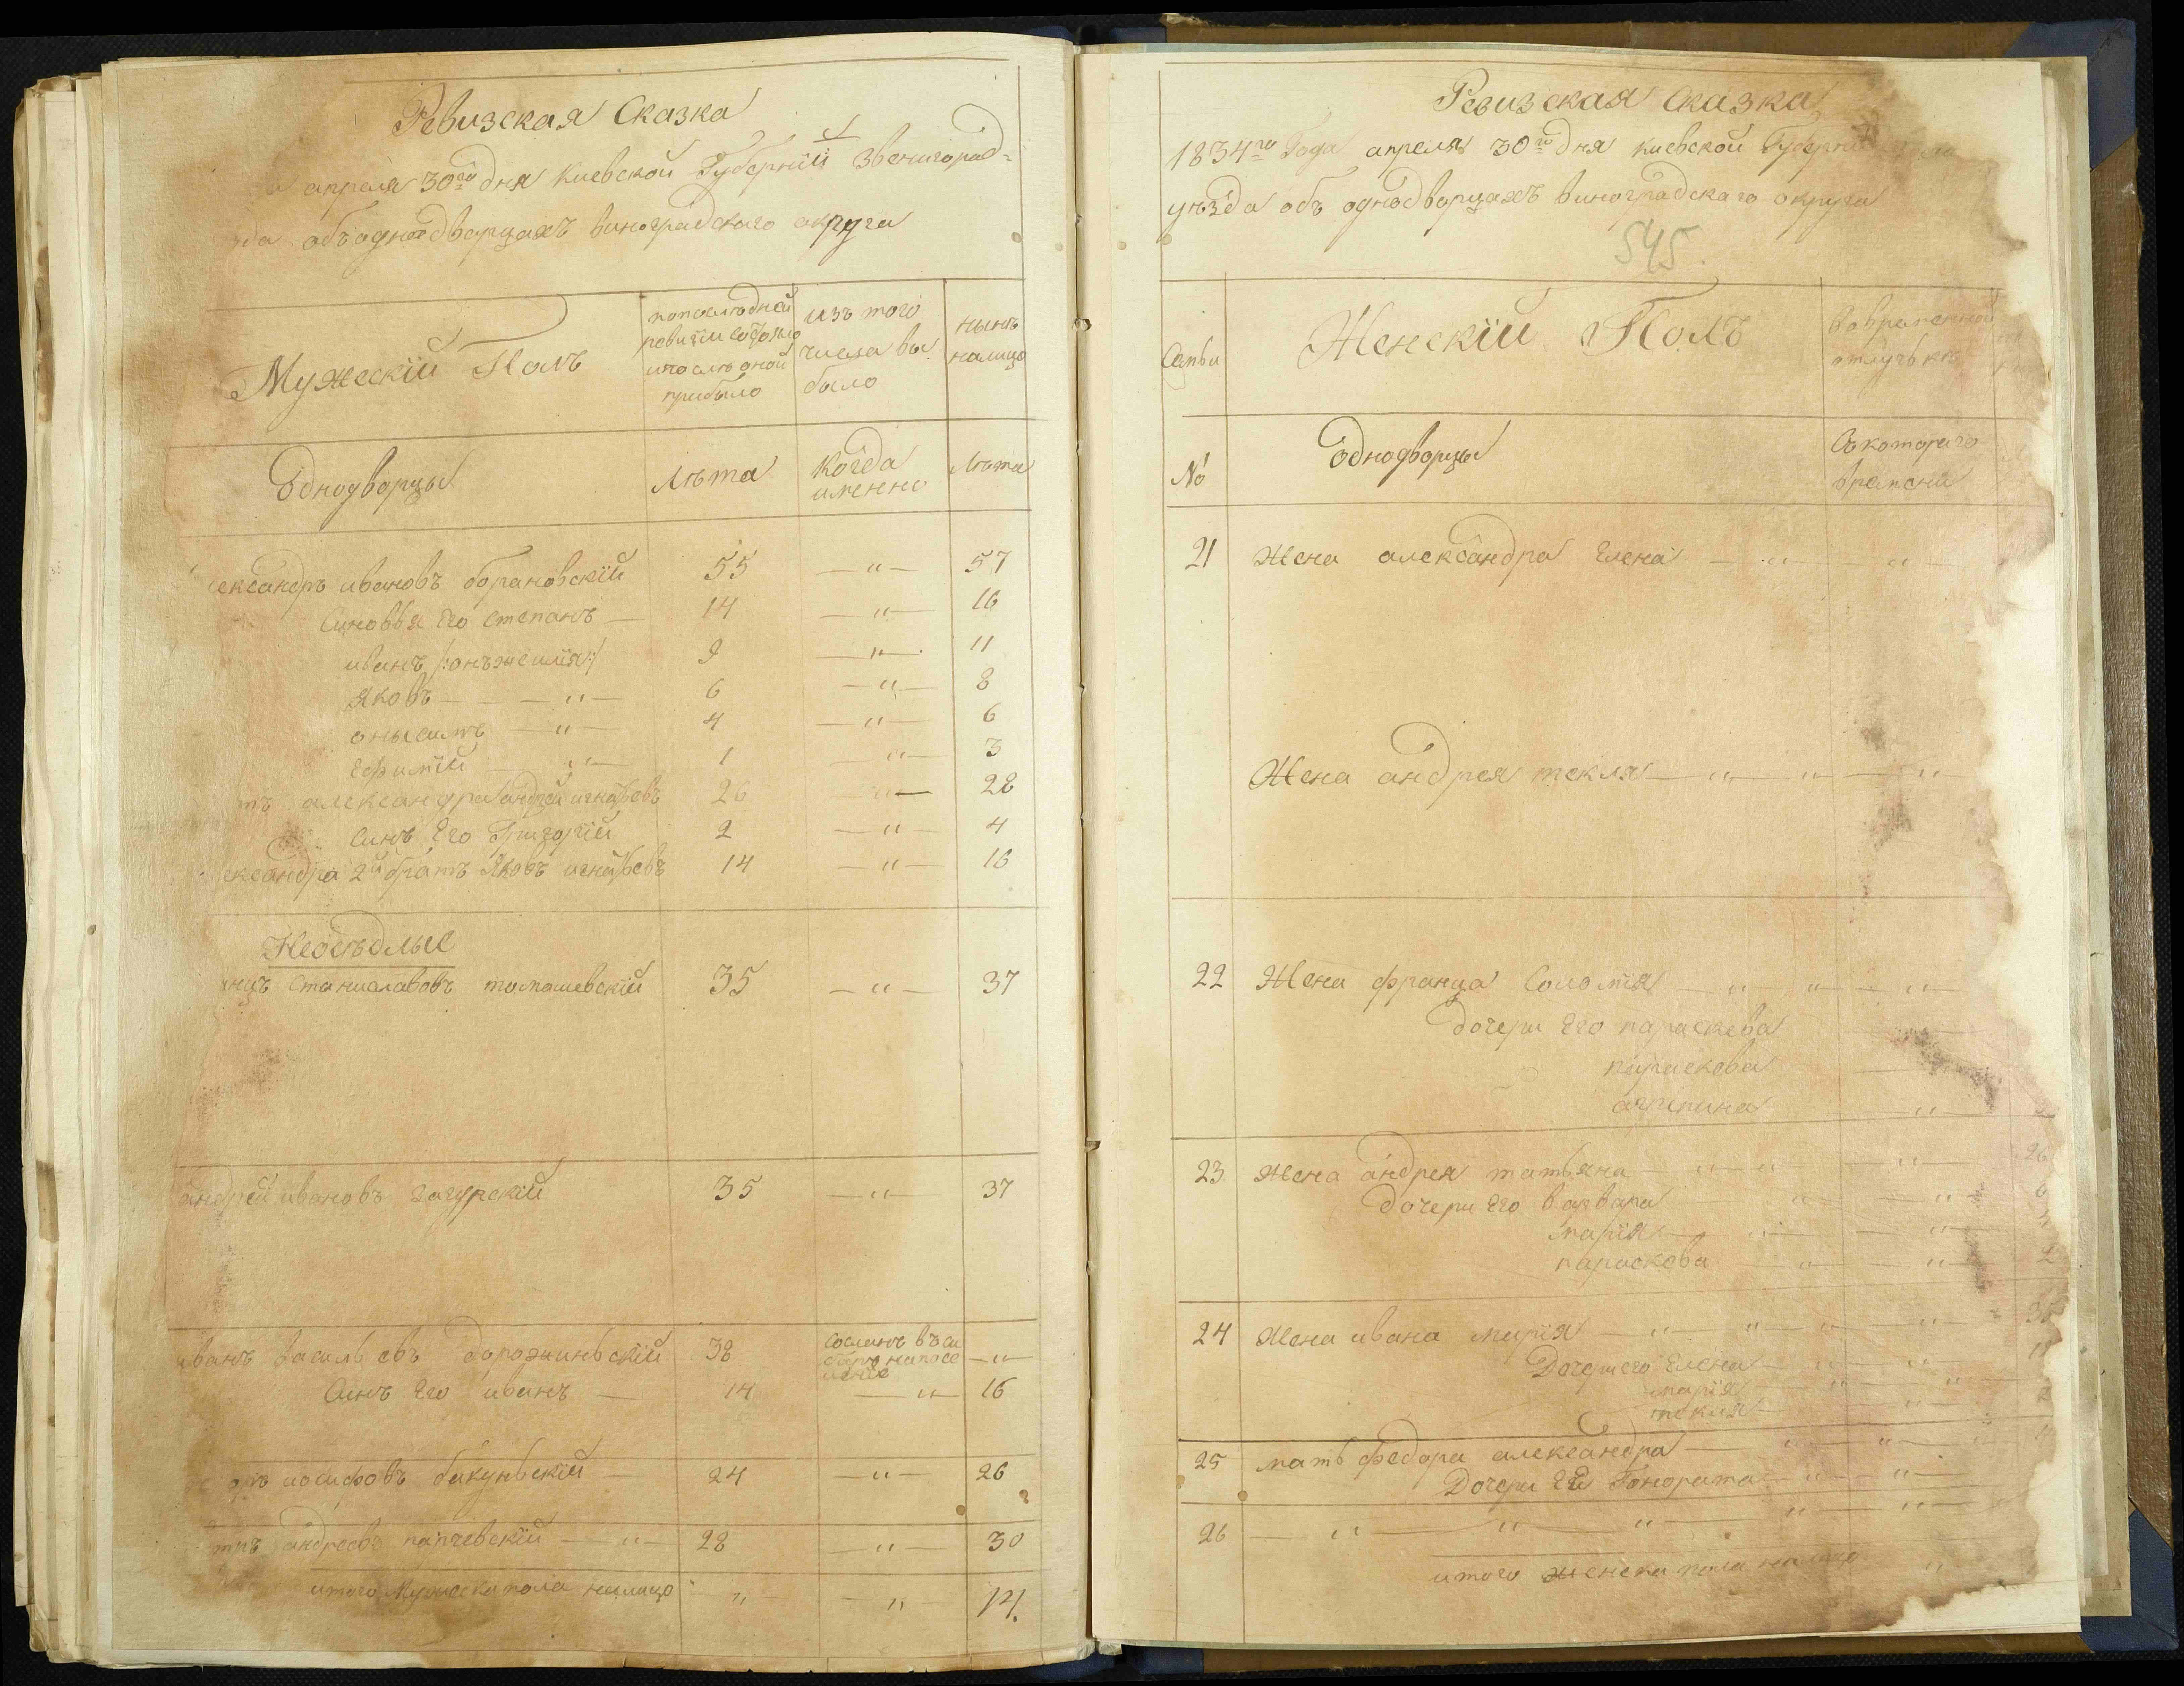 Ревизская Сказка
апреля 30го дня Киевской Губерніи Звенигород-
да объ однодворцахъ виноградскаго округа
Мужескій Полъ
по последней ревизіи состояло и после оной прибыло
изъ того числа выбыло
ныне налицо
Однодворцы
Лѣта
Когда именно
Лѣта
ександръ ивановъ барановскій 55 — " — 57
Синовья Его Степанъ — 14 — " — 16
иванъ /:онъже илія:/ 9 — " — 11
Яковъ — — — " — 6 — " — 8
онысимъ — " — 4 — " — 6
Ефимій — " — 1 " — 3
тъ александра андрей игнатьевъ 26 — " — 28
Синъ Его Григорій 2 — " — 4
ександра 2й братъ Яковъ игнатьевъ 14 — " — 16
Неосѣдлые
нцъ Станиславовъ томашевскій 35 — " — 37
андрей ивановъ загурскій 35 — " — 37
иванъ васильевъ дорожиньскій 38 сосланъ въ си бирь на посе леніе — " —
Синъ Его иванъ — 14 — " — 16
оръ иосифовъ бакуньскій — 24 — " — 26
андреевъ папчевскій — " — 28 — " — 30
итого Мужеска пола налицо " — — " — 14.
Ревизская Сказка
1834го Года апреля 30го дня Киевской Губерніи
уѣзда объ однодворцахъ виноградскаго округа
545.
Семьи
Женскій Полъ
Во временной отлучьке
№
Однодворцы
Съ котораго времени
21 Жена александра Елена — " — " —
Жена андрея текля — " — " — " —
22 Жена франца Соломія — " — " — " —
дочери Его параскева
параскова
агрипина — " —
23 Жена андрея татьяна " — " — " — 26
Дочери Его варвара — " — " — 6
марія — " — " —
параскова — " — " — 2
24 Жена ивана марія — " — " — " — " —
Дочери его Елена — " — " —
марія — " — " —
текля — " —
25 мать федора александра — " — " —
Дочери Её Гонората — " — " —
26 — " — " — " — " — " —
итого женска пола налицо "